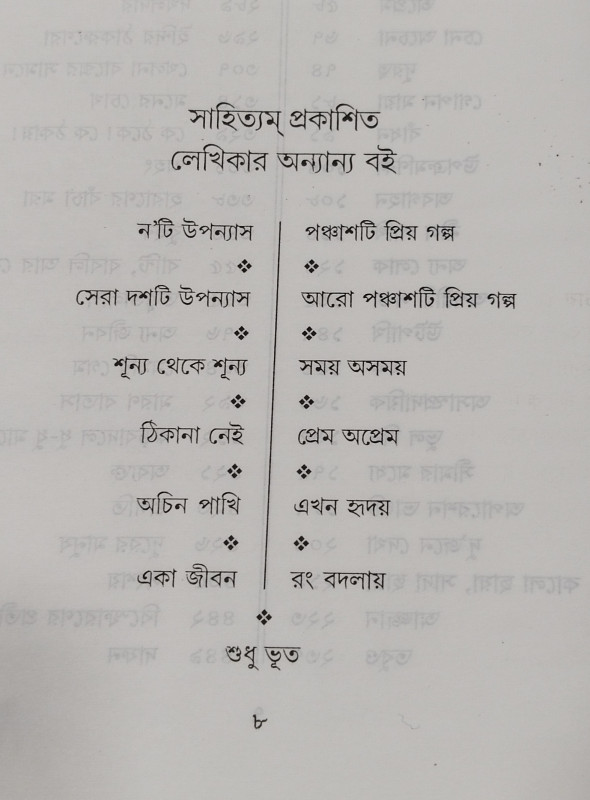 সাহিত্যম্ প্রকাশিত
লেখিকার অন্যান্য বই
ন'টি উপন্যাস
পঞ্চাশটি প্রিয় গল্প
সেরা দশটি উপন্যাস
আরো পঞ্চাশটি প্রিয় গল্প
শূন্য থেকে শূন্য
সময় অসময়
ঠিকানা নেই
প্রেম অপ্রেম
অচিন পাখি
এখন হৃদয়
একা জীবন
রং বদলায়
শুধু ভূত
৮